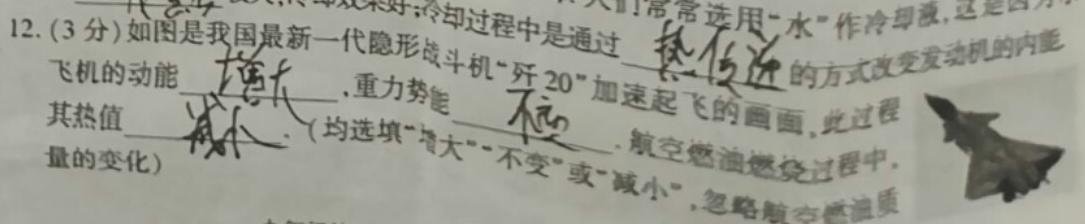 人们常常选用“水”作冷却液,这是因为水
却效果好;冷却过程中是通过 热传递 的方式改变发动机的内能
12. (3分)如图是我国最新一代隐形战斗机“歼20”加速起飞的画面,此过程
飞机的动能 增大 ,重力势能 不变 . 航空燃油燃烧过程中,
其热值 减小 . (均选填“增大”“不变”或“减小”,忽略航空燃油质
量的变化)